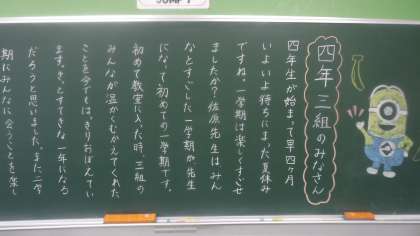 JUMP!
四年三組のみなさん
四年生が始まって早四ヶ月
いよいよ待ちにまった夏休み
ですね。一学期は楽しくすごせ
ましたか?佐原先生はみん
なとすごした一学期が、先生
になって初めての一学期です。
初めて教室に入った時、三組の
みんなが温かくむかえてくれた
ことを今でもはっきりおぼえてい
ます。きっとすてきな一年になる
だろうと思いました。また二学
期にみんなに会うことを楽し